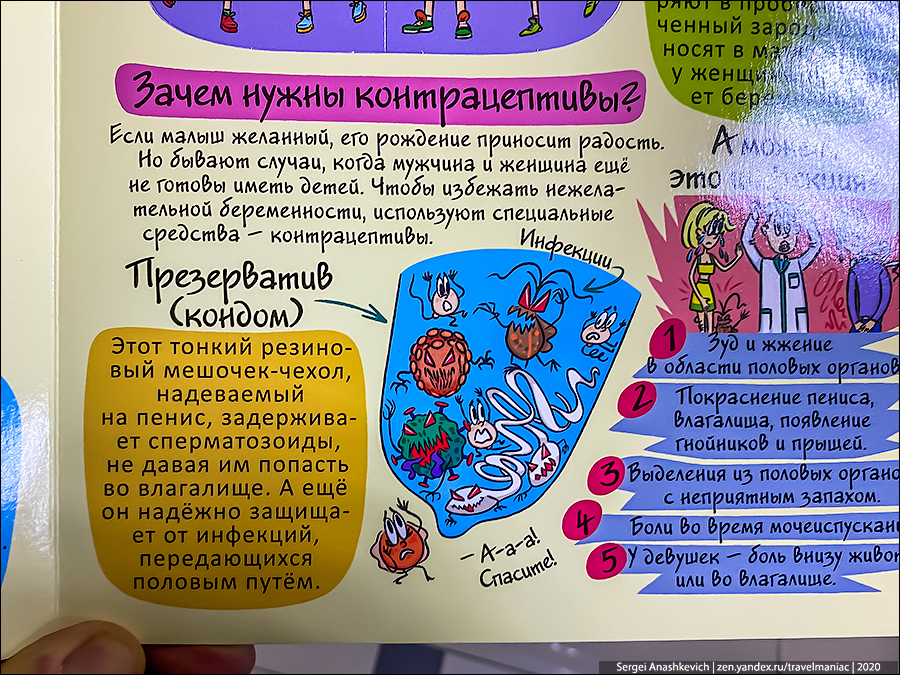 ченный зарод
носят в ма
у женщи
ет бере
Зачем нужны контрацептивы?
Если малыш желанный, его рождение приносит радость.
Но бывают случаи, когда мужчина и женщина ещё
не готовы иметь детей. Чтобы избежать нежела-
тельной беременности, используют специальные
средства – контрацептивы.
Презерватив
(кондом)
Инфекции
Этот тонкий резино-
вый мешочек-чехол,
надеваемый
на пенис, задержива-
ет сперматозоиды,
не давая им попасть
во влагалище. А ещё
он надёжно защища-
ет от инфекций,
передающихся
половым путём.
– А-а-а!
Спасите!
А может,
это инфекция
1 Зуд и жжение
в области половых органов
2 Покраснение пениса,
влагалища, появление
гнойников и прыщей.
3 Выделения из половых органо
с неприятным запахом.
4 Боли во время мочеиспускани
5 У девушек – боль внизу живот
или во влагалище.
Sergei Anashkevich | zen.yandex.ru/travelmaniac | 2020